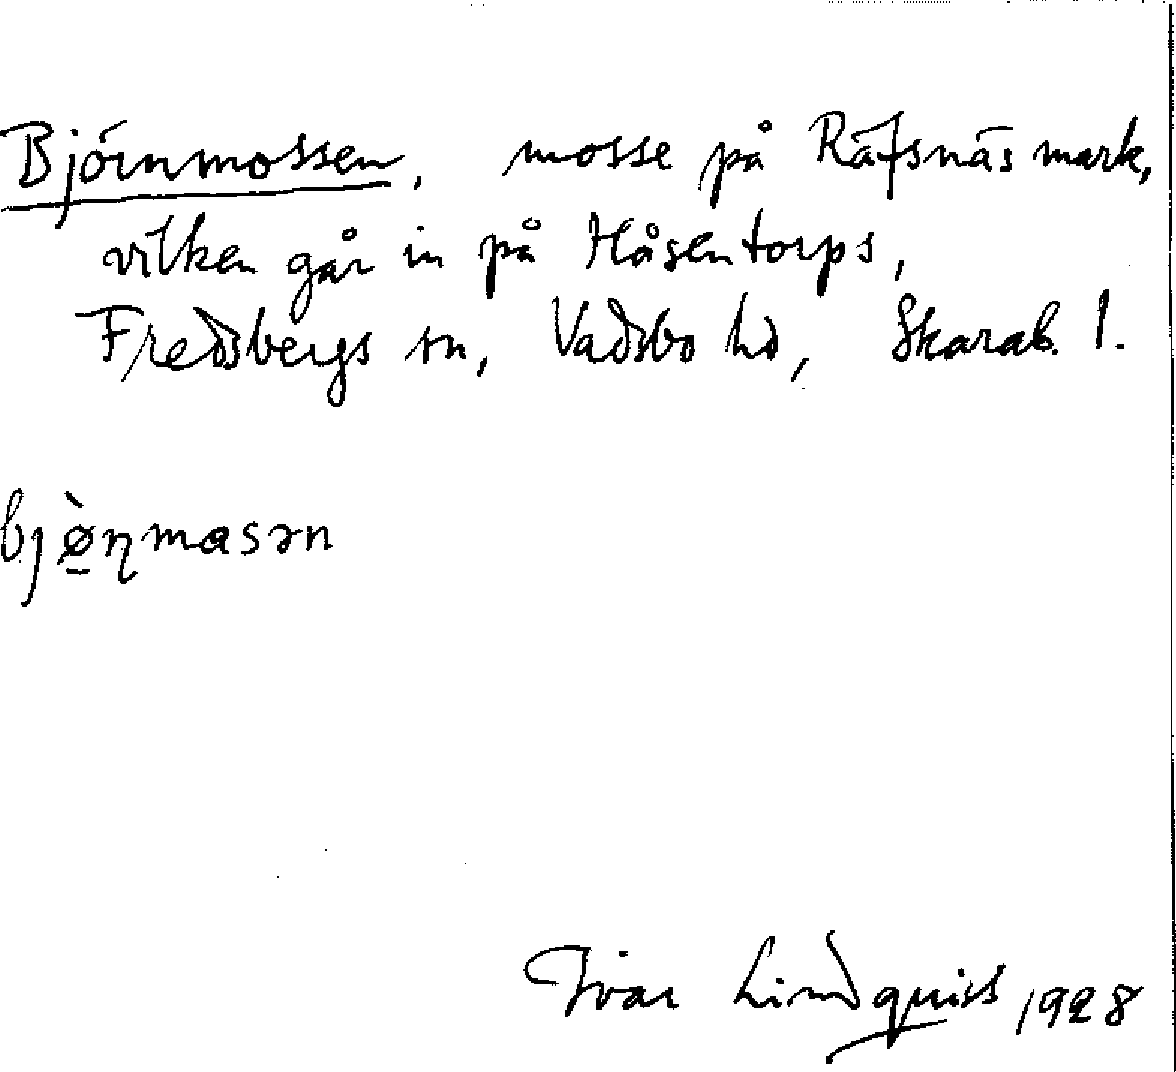 Björnmossen, mosse på Räfsnäs mark,
vilken går in på Håsentorps,
Fredsbergs sn, Vadsbo hd, Skarab. l.
bjø̠̀ɳmasən
Ivar Lindquist 1928